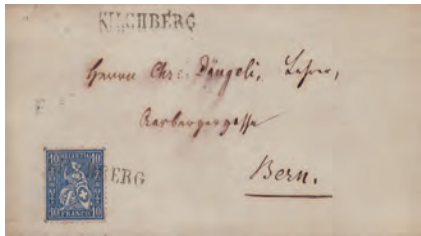 KILCHBERG
Herrn Chr. Dängeli, Lehrer,
Aarbergergasse
Bern.
HELVETIA
10 10
BERG
10 FRANCO 10